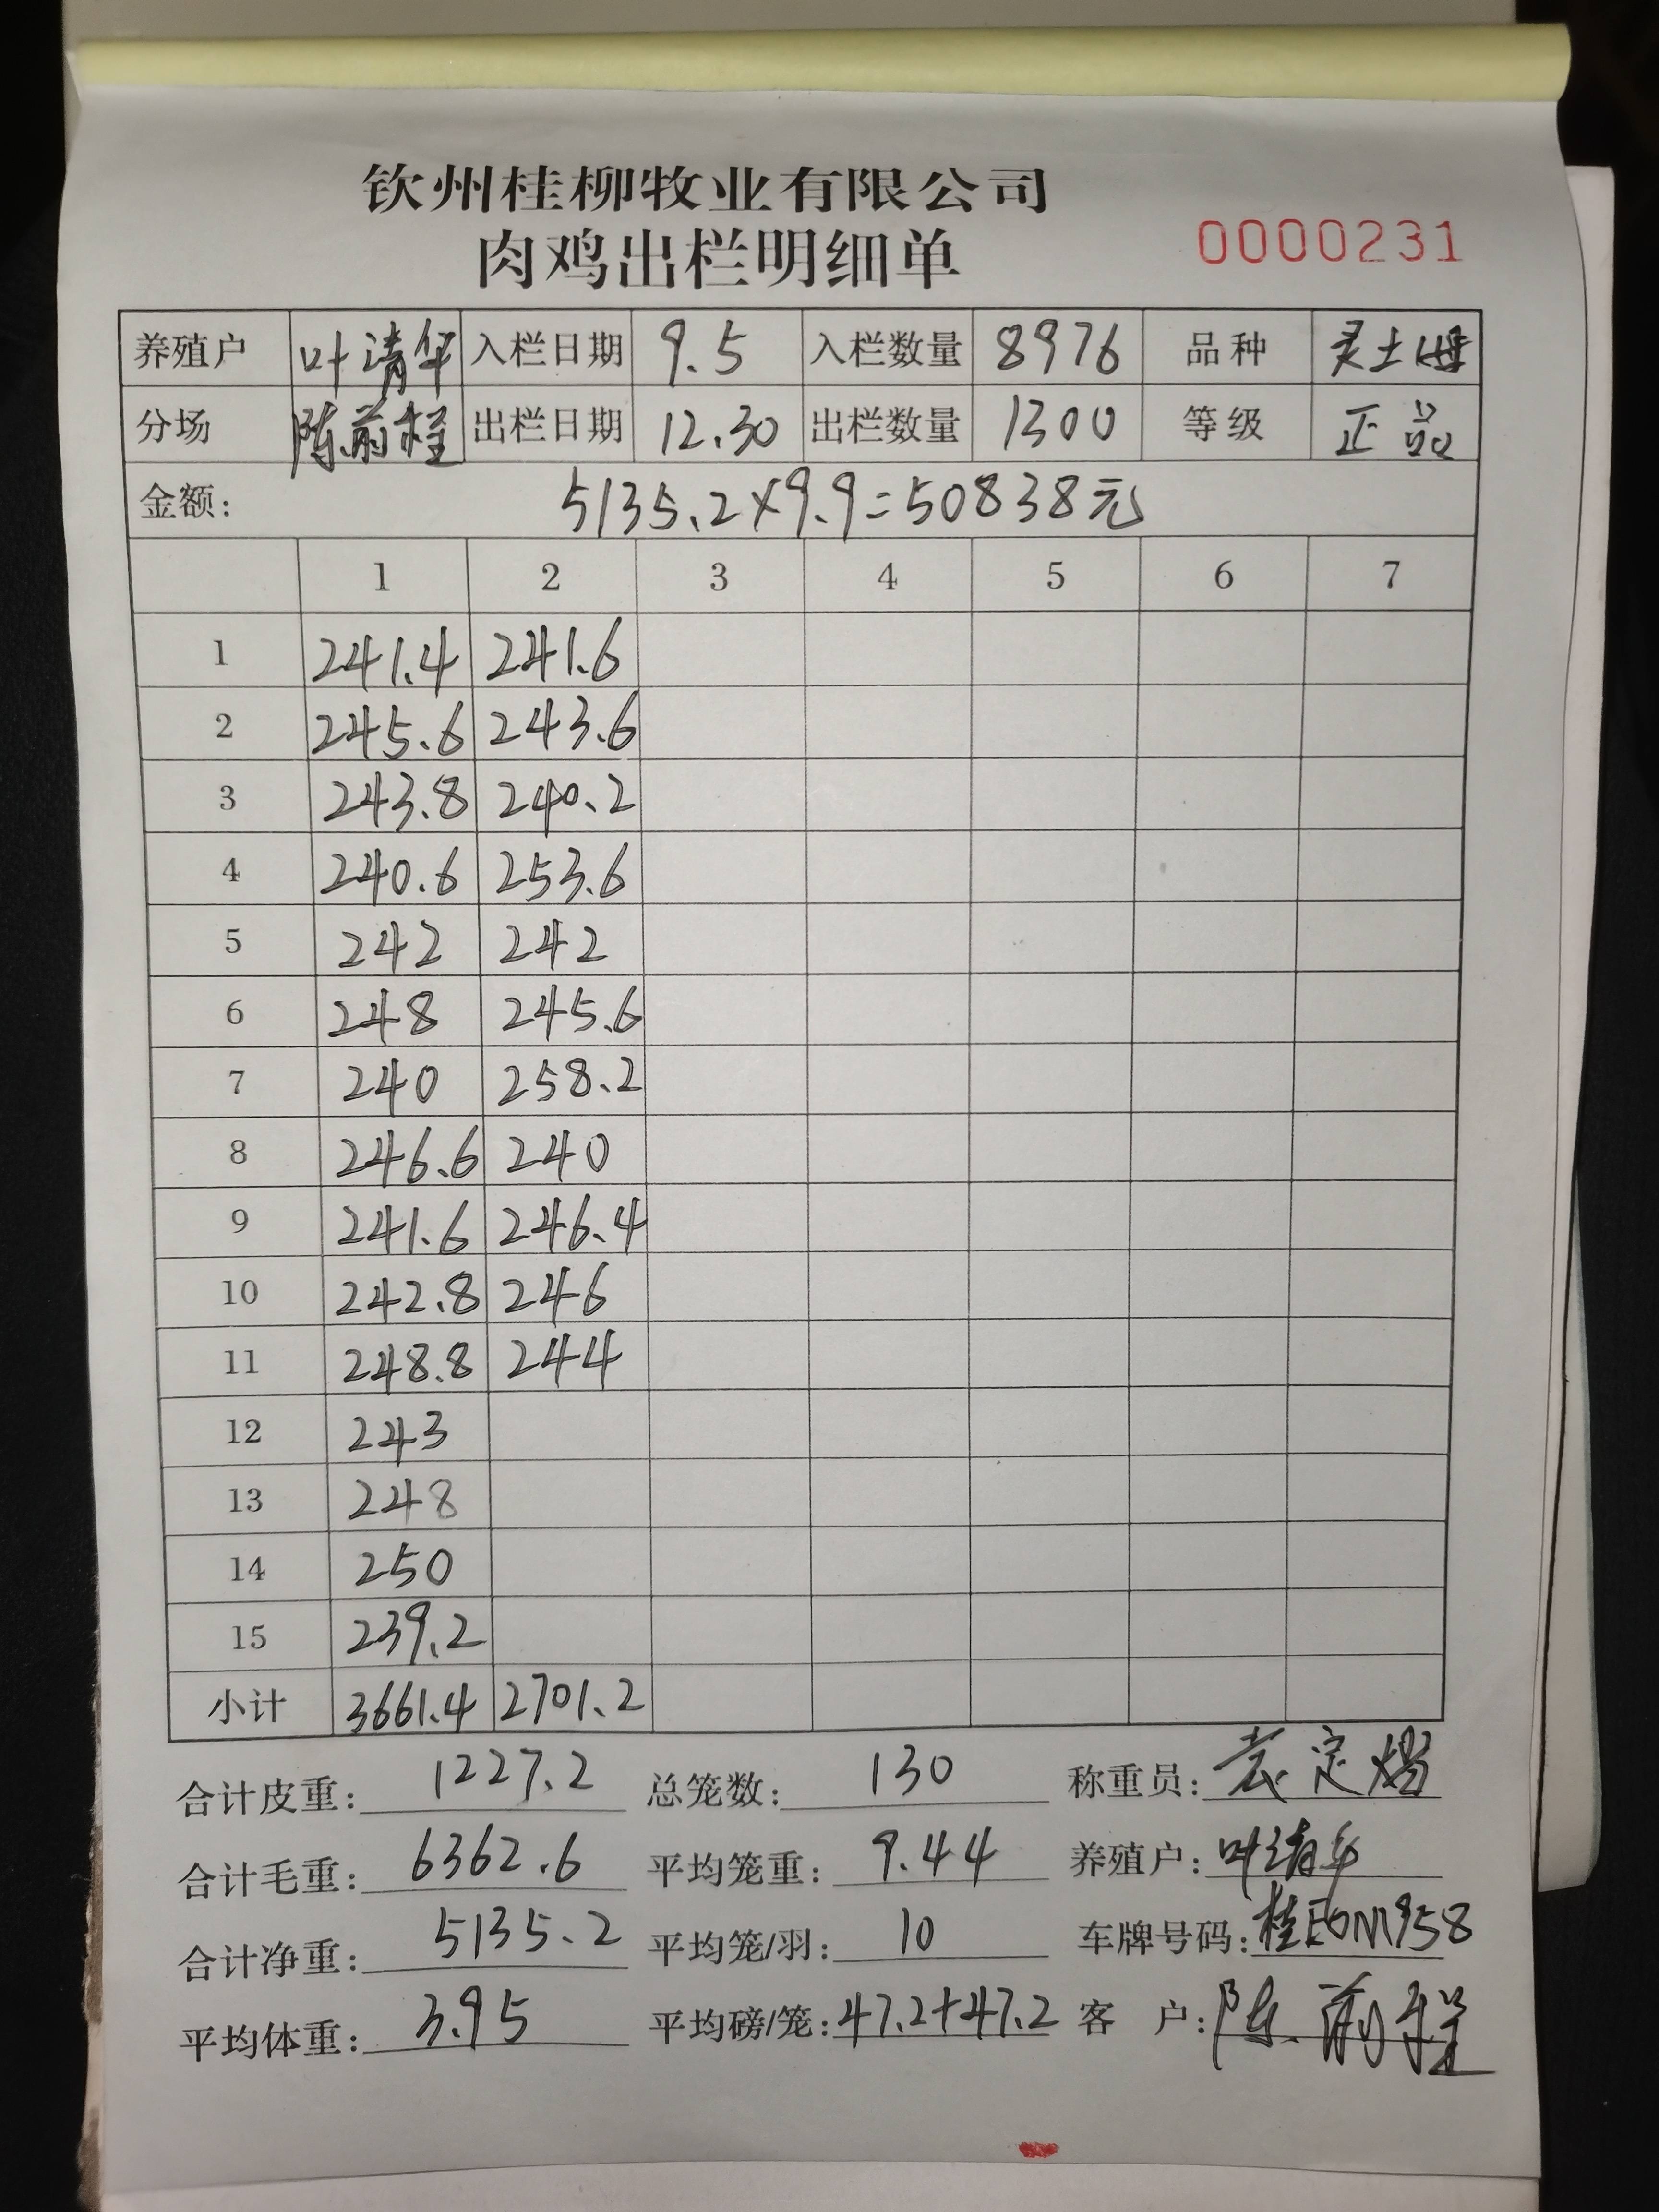 钦州桂柳牧业有限公司
肉鸡出栏明细单 0000231
养殖户 叶清华 入栏日期 9.5 入栏数量 8976 品种 灵土
分场 陈前程 出栏日期 12.30 出栏数量 1300 等级 正品
金额: 5135.2×9.9=50838元
1 2 3 4 5 6 7
1 241.4 241.6
2 245.6 243.6
3 243.8 240.2
4 240.6 253.6
5 242 242
6 248 245.6
7 240 258.2
8 246.6 240
9 241.6 246.4
10 242.8 246
11 248.8 244
12 243
13 248
14 250
15 239.2
小计 3661.4 2701.2
合计皮重: 1227.2 总笼数: 130 称重员: 定
合计毛重: 6362.6 平均笼重: 9.44 养殖户: 叶清华
合计净重: 5135.2 平均笼/羽: 10 车牌号码:
平均体重: 3.95 平均磅/笼: 47.2+47.2 客 户: 陈前程